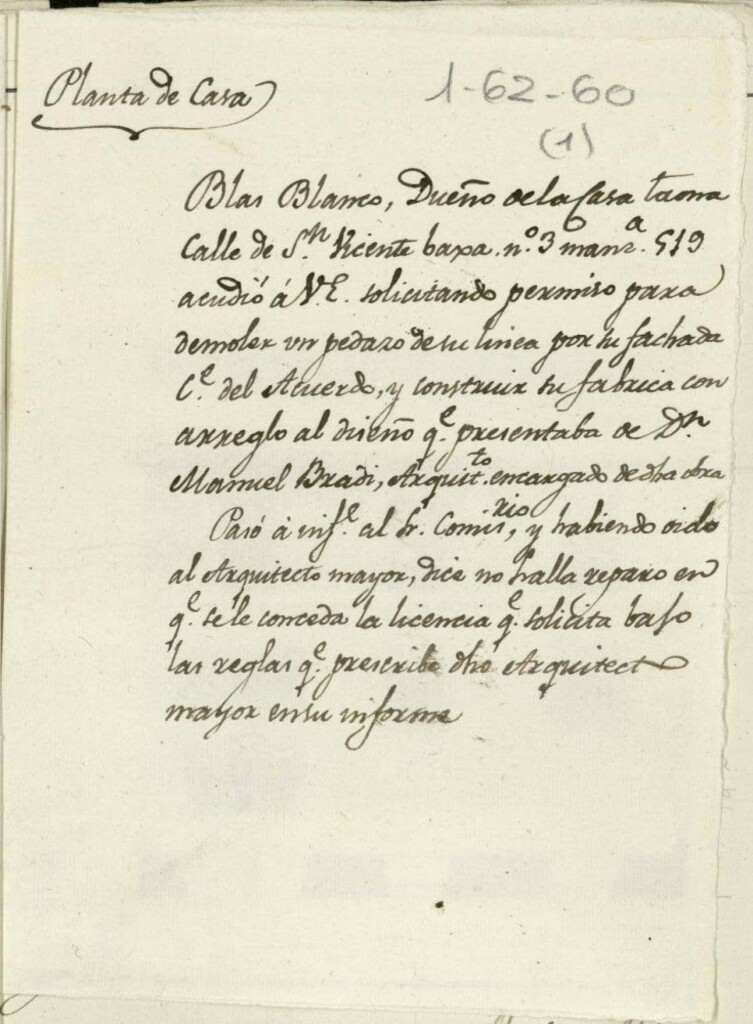 Planta de Casa
1-62-60
(1)
Blas Blanco, Dueño de la Casa taona
Calle de Sn. Vicente baxa. nº. 3 manza. 519
acudió á V.E. solicitando permiso para
demoler un pedazo de su linea por su fachada
Ce. del Acuerdo, y construir su fabrica con
arreglo al diseño qe. presentaba de Dn.
Manuel Bradi, Arquitto. encargado de dha obra
Pasó á infe. al Sr. Comisrio, y habiendo oido
al Arquitecto mayor, dice no halla reparo en
qe. se le conceda la licencia qe. solicita baso
las reglas qe. prescribe dho Arquitecto
mayor en su informe